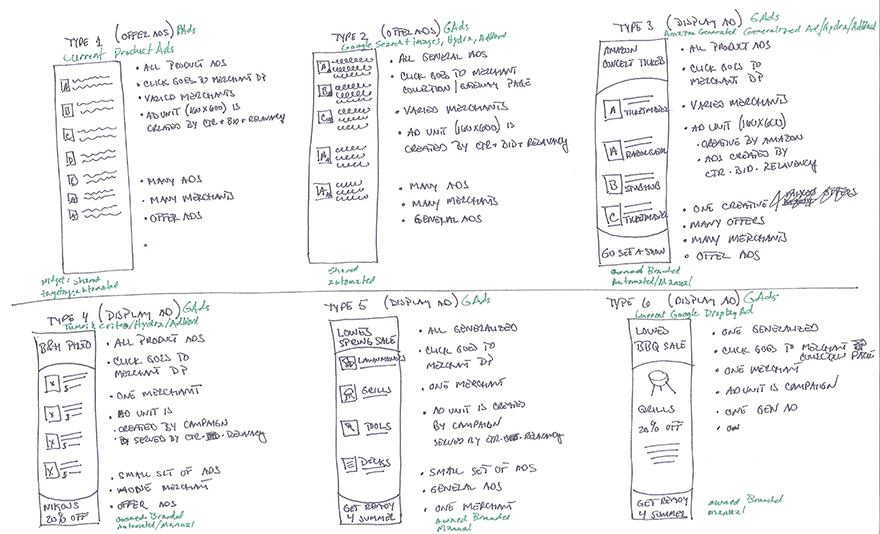 TYPE 1 (OFFER ADS) PAds
Current Product Ads
A
B
C
D
• ALL PRODUCT ADS
• CLICK GOES TO MERCHANT DP
• VARIED MERCHANTS
• AD UNIT (160X600) IS
CREATED BY CTR + BID + RELAVACY
• MANY ADS
• MANY MERCHANTS
• OFFER ADS
Widget: shared
targeting: automated
TYPE 2 (OFFER ADS) GAds
Google Search + images, Hydra, AdWord
• ALL GENERAL ADS
• CLICK GOES TO MERCHANT
COLLECTION / GATEWAY PAGE
• VARIED MERCHANTS
• AD UNIT (160X600) IS
CREATED BY CTR + BID + RELAVACY
• MANY ADS
• MANY MERCHANTS
• GENERAL ADS
Shared
automated
TYPE 3 (DISPLAY AD) GAds
Amazon Generated Generalized Ad/Hydra/AdWord
AMAZON
CONCERT TICKETS
A TICKETMASTER
A
B STUBHUB
C TICKETMASTER
GO SEE A SHOW
• ALL PRODUCT ADS
• CLICK GOES TO
MERCHANT DP
• VARIED MERCHANTS
• AD UNIT (160X600)
• CREATIVE BY AMAZON
• ADS CREATED BY
CTR • BID • RELAVENCY
• ONE CREATIVE
• MANY OFFERS
• MANY MERCHANTS
• OFFER ADS
owned Branded
Automated/Manual
TYPE 4 (DISPLAY AD) GAds
Criteo/Hydra/AdWord
B&H PHOTO
X
X
X
X
NIKONS
20% OFF
• ALL PRODUCT ADS
• CLICK GOES TO
MERCHANT DP
• ONE MERCHANT
• AD UNIT IS
• CREATED BY CAMPAIGN
• SERVED BY CTR • RELAVACY
• SMALL SET OF ADS
• ONE MERCHANT
• OFFER ADS
owned Branded
Automated/Manual
TYPE 5 (DISPLAY AD) GAds
LOWES
SPRING SALE
LAWNMOWERS
GRILLS
TOOLS
DECKS
GET READY
4 SUMMER
• ALL GENERALIZED
• CLICK GOES TO
MERCHANT DP
• ONE MERCHANT
• AD UNIT IS CREATED
BY CAMPAIGN
SERVED BY CTR • RELAVACY
• SMALL SET OF ADS
• GENERAL ADS
• ONE MERCHANT
owned Branded
Manual
TYPE 6 (DISPLAY AD) GAds
Current Google Display Ad
LOWES
BBQ SALE
GRILLS
20% OFF
GET READY
4 SUMMER
• ONE GENERALIZED
• CLICK GOES TO MERCHANT
COLLECTION PAGE
• ONE MERCHANT
• AD UNIT IS CAMPAIGN
• ONE GEN AD
owned Branded
Manual